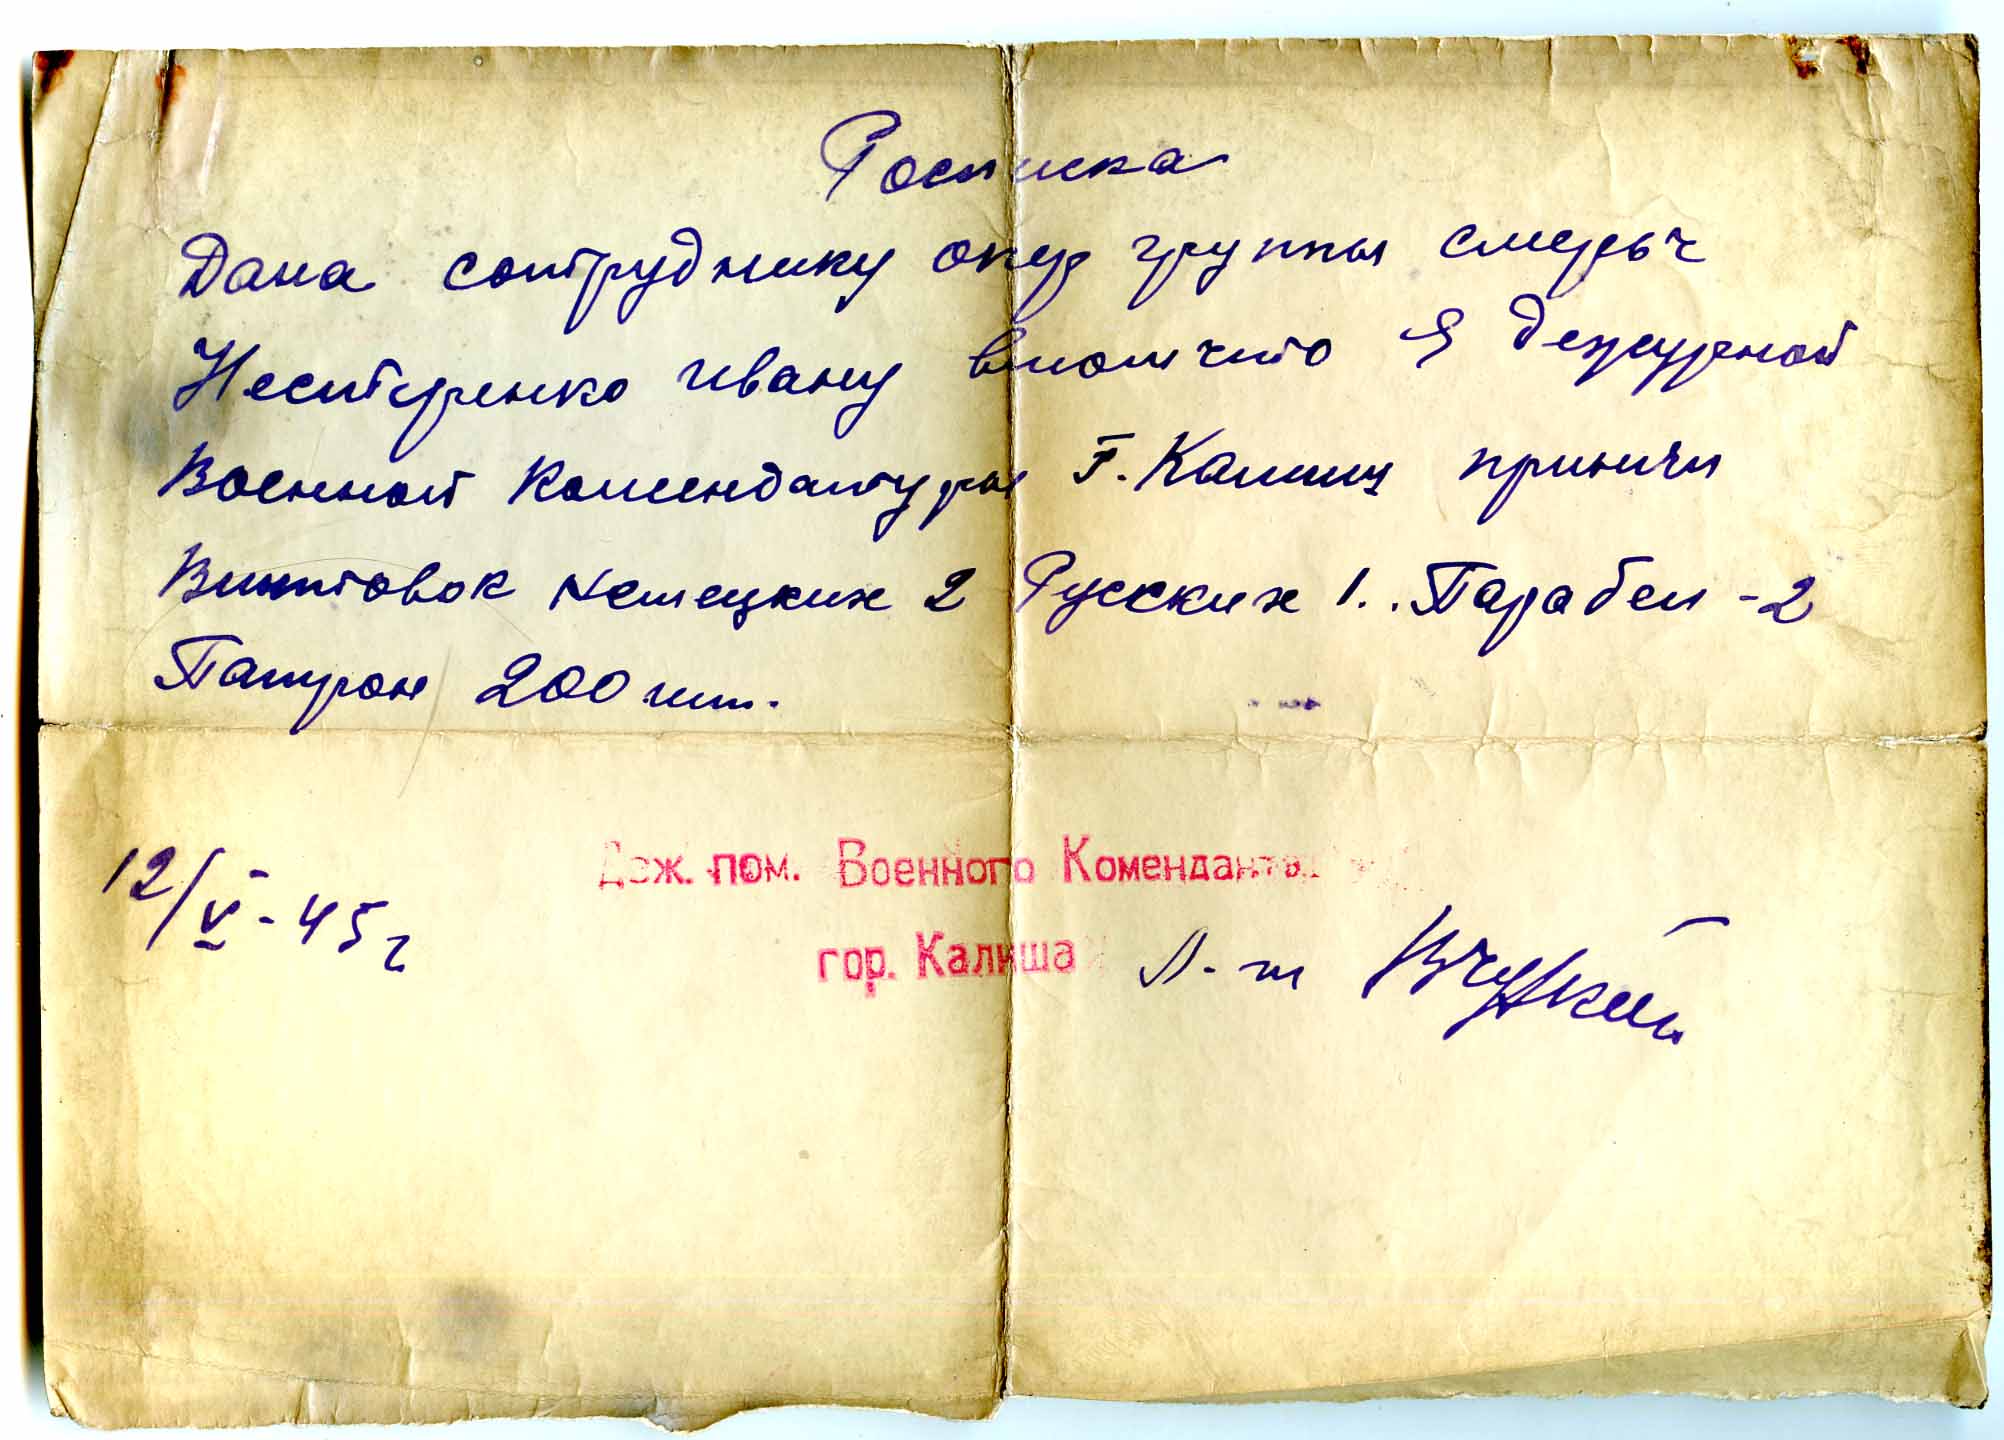 Росписка
Дана сотруднику опер группы смерьч
Нестеренко Ивану втом что Я дежурной
Военной Комендатуры г. Калиш принял
Винтовок Немецких 2 Русских 1.. Парабел -2
Патрон 200 шт.
12/V-45 г
Деж. пом. Военного Коменданта
гор. Калиша
Л-т